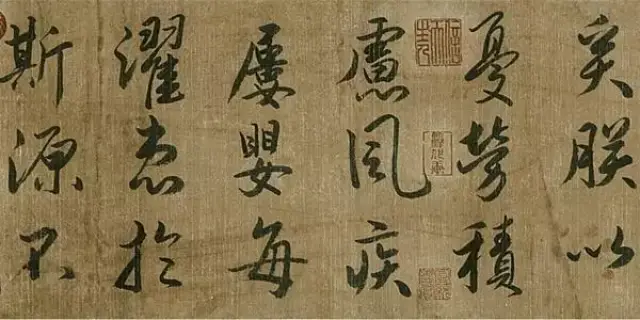 矣朕以
憂勞積
慮風疾
屢嬰每
濯患於
斯源不